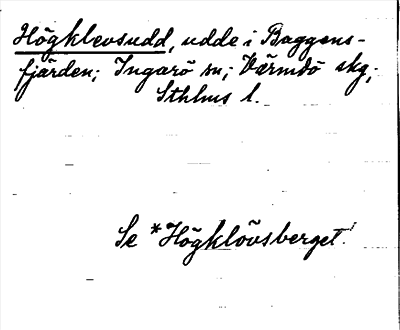 Högklevsudd, udde i Baggens-
fjärden; Ingarö sn; Värmdö skg;
Sthlms l.
Se *Högklövsberget!